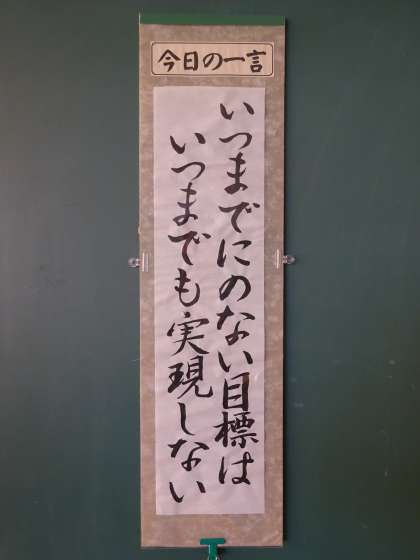 今日の一言
いつまでにのない目標は
いつまでも実現しない